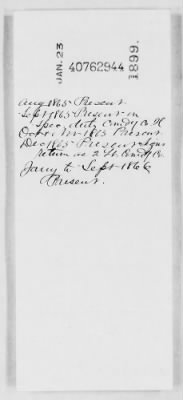 JAN. 23
40762944
1899.
Aug 1865 Present
Sept 1865 Present on
spec. duty Comdg Co H
Oct & Nov 1865 Present
Dec 1865 Present Signs
return as 2 Lt Comdg Co
Jany to Sept 1866
Present.